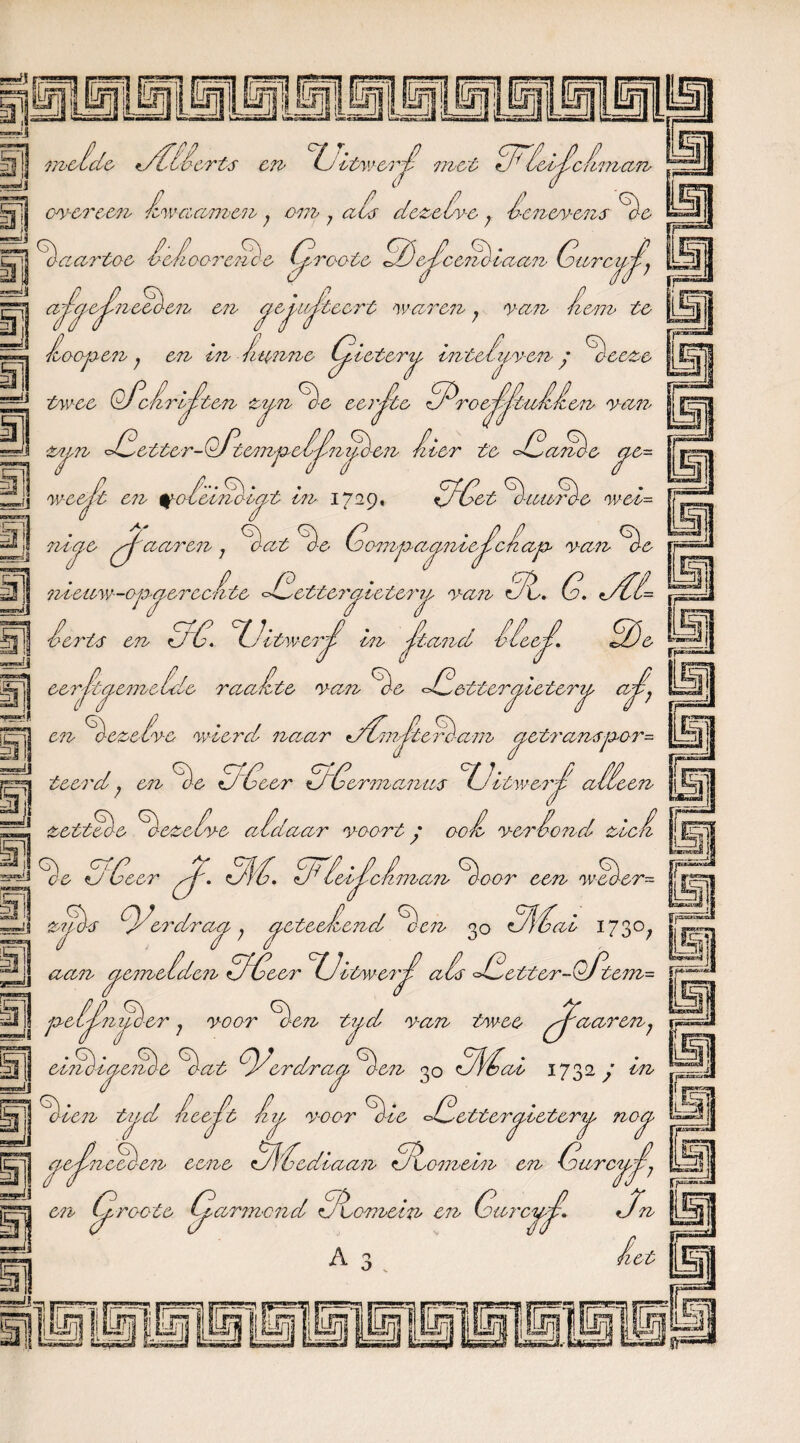 melde Alberts en Uitwerf met Fleiſchman
overeen kwaamen, om, als dezelve, benevens de
daartoe behoorende Groote Deſcendiaan Curcyf,
afgeſneeden en gejuſteert waren, van hem te
koopen, en in hunne Gietery intelyven; deeze
twee Schriften zyn de eerſte Proefſtukken van
zyn Letter-Stempelſnyden hier te Lande ge=
weeſt en voleindigt in 1729. Het duurde wei=
nige Jaaren, dat de Compagnieſchap van de
nieuw-opgerechte Lettergietery van R. C. Al=
berts en H. Uitwerf in ſtand bleef. De
eerſtgemelde raakte van de Lettergietery af,
en dezelve wierd naar Amſterdam getranspor=
teerd, en de Heer Hermanus Uitwerf alleen
zettede dezelve aldaar voort; ook verbond zich
de Heer J. M. Fleiſchman door een weder=
zyds Verdrag, geteekend den 30 Mai 1730,
aan gemelden Heer Uitwerf als Letter-Stem=
pelſnyder, voor den tyd van twee Jaaren,
eindigende dat Verdrag den 30 Mai 1732; in
dien tyd heeft hy voor die Lettergietery nog
geſneeden eene Mediaan Romein en Curcyf,
en Groote Garmond Romein en Curcyf. In
A 3 het